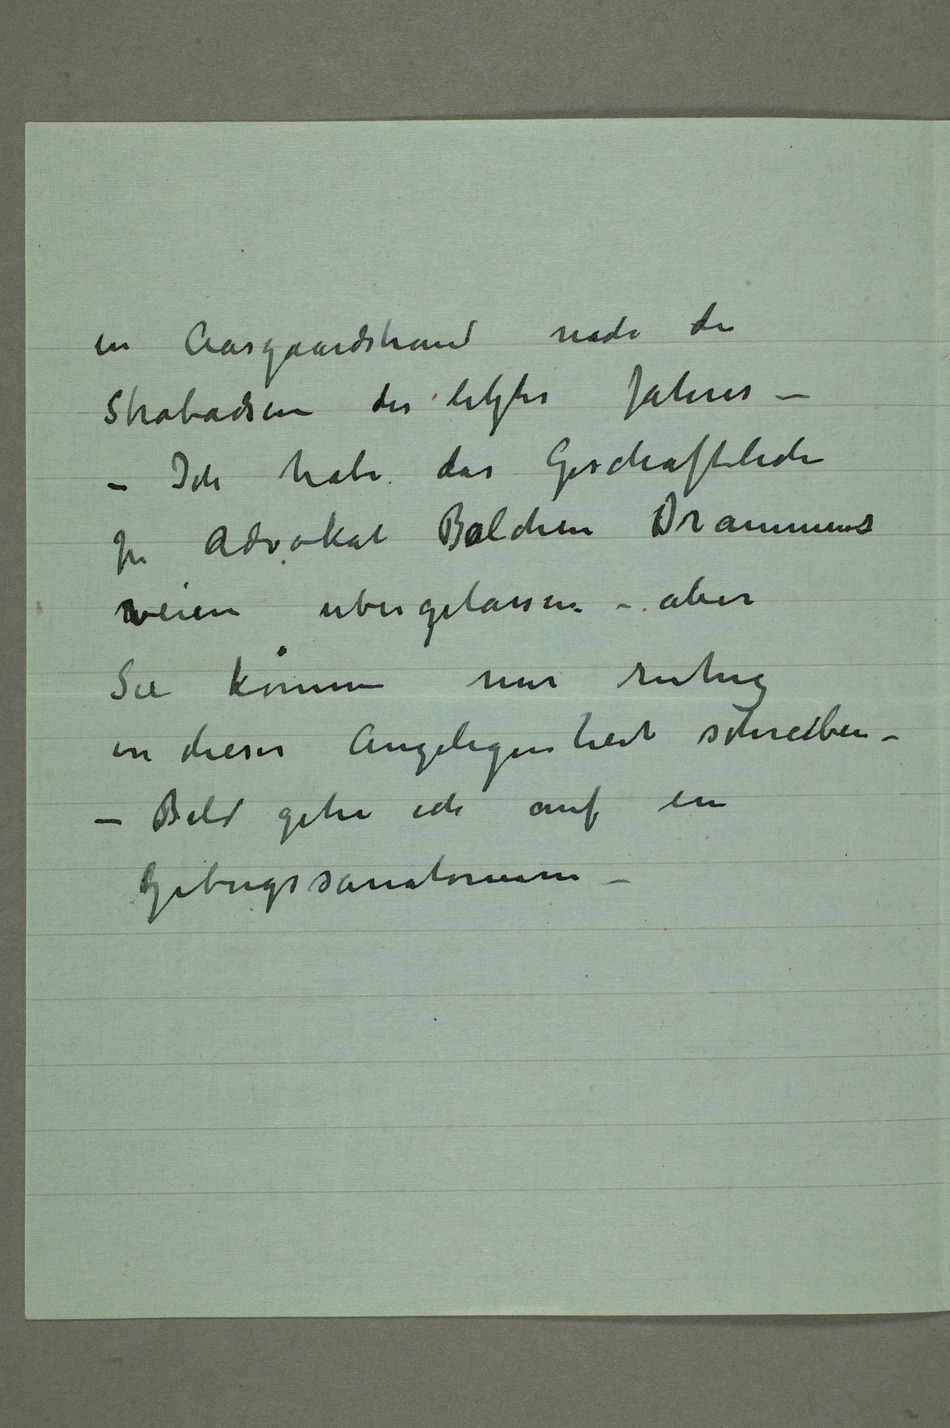 in Aasgaardstrand nach die
Strabadsen des letztes Jahres –
– Ich habe das Geschaftliche
zu Advokat Boldhen Drammens
veien ubergelassen – aber
Sie kömmen nur ruhig
in dieser Angelegenheit schreiben –
– Bald gehe ich auf ein
Gebirgssanatorium –